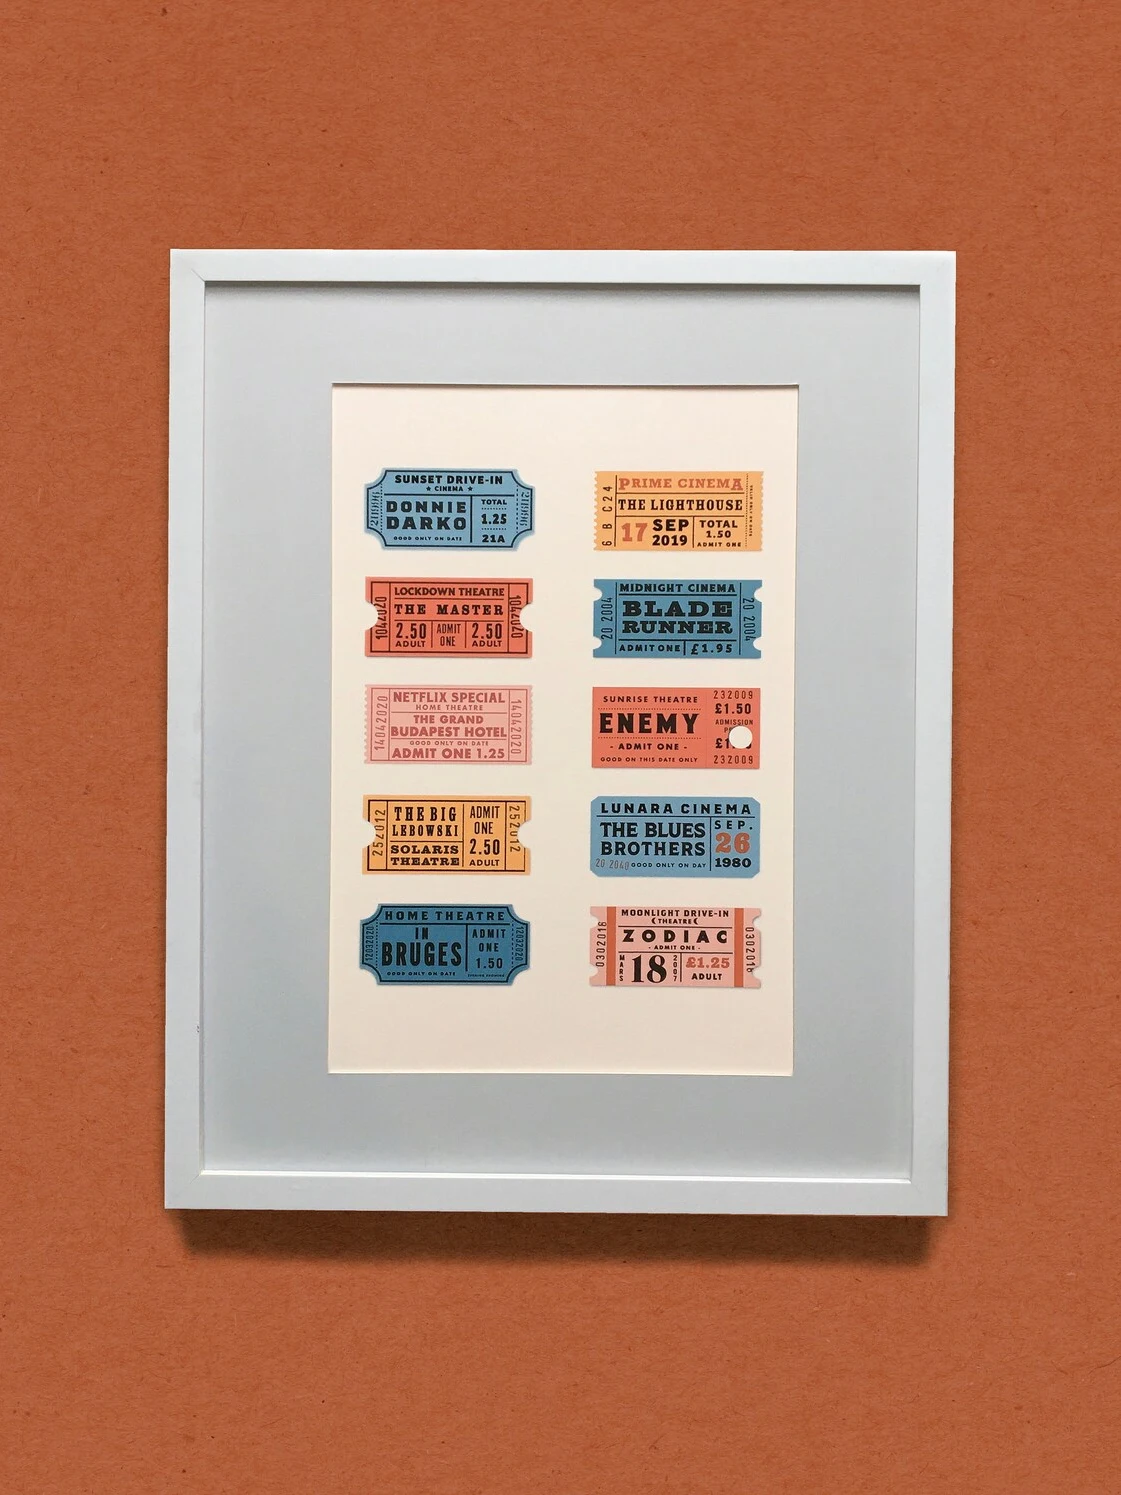 SUNSET DRIVE-IN
★ CINEMA ★
DONNIE
DARKO
GOOD ONLY ON DATE
TOTAL
1.25
21A
PRIME CINEMA
6 B C24
THE LIGHTHOUSE
17 SEP
2019
TOTAL
1.50
ADMIT ONE
LOCKDOWN THEATRE
1042020
THE MASTER
2.50
ADULT
ADMIT
ONE
2.50
ADULT
1042020
MIDNIGHT CINEMA
20 2004
BLADE
RUNNER
ADMIT ONE £1.95
20 2004
NETFLIX SPECIAL
HOME THEATRE
14042020
THE GRAND
BUDAPEST HOTEL
GOOD ONLY ON DATE
ADMIT ONE 1.25
14042020
SUNRISE THEATRE
ENEMY
- ADMIT ONE -
GOOD ON THIS DATE ONLY
232009
£1.50
ADMISSION
£1
232009
252012
THE BIG
LEBOWSKI
SOLARIS
THEATRE
ADMIT
ONE
2.50
ADULT
252012
LUNARA CINEMA
THE BLUES
BROTHERS
20 2040 GOOD ONLY ON DAY
SEP.
26
1980
HOME THEATRE
12032020
IN
BRUGES
GOOD ONLY ON DATE
ADMIT
ONE
1.50
12032020
MOONLIGHT DRIVE-IN
THEATRE
0302016
ZODIAC
- ADMIT ONE -
MARS
18
2007
£1.25
ADULT
0302016